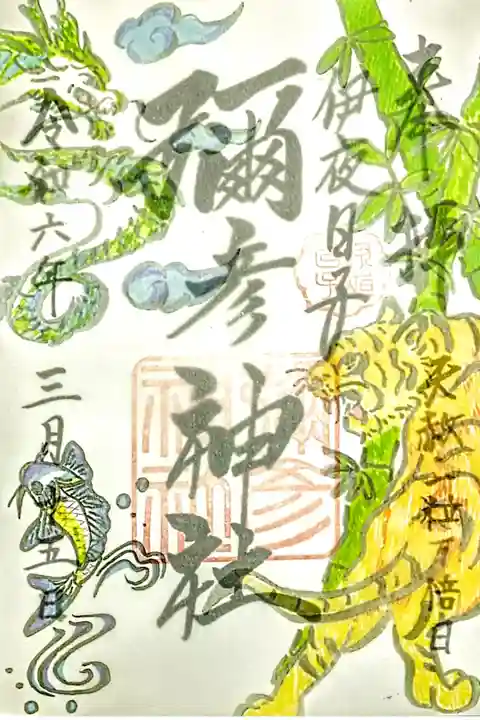 奉拝
天赦一粒万倍日
伊夜日子
彌彦神社
令和六年
三月十五日